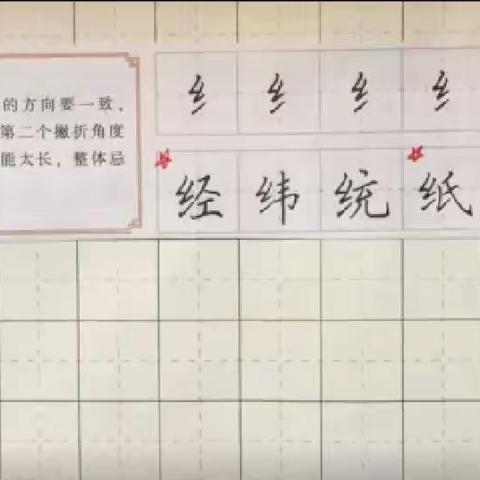 的方向要一致，
第二个撇折角度
能太长，整体忌
纟 纟 纟 纟
经 纬 统 纸